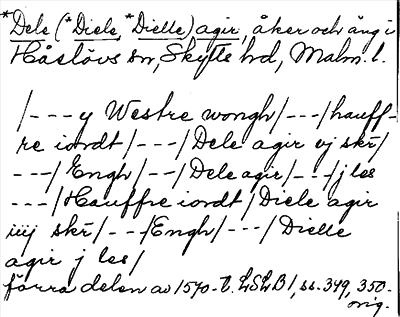 *Dele (*Diele, *Dielle) agir, åker och äng i
Håslövs sn, Skytts hd, Malm. l.
/---y Westre wongh/---/hauff-
re iordt/---/Dele agir vj skr/
---/Engh/--/Dele agir/---/j les
---/Hauffre iordt/Diele agir
iiij skr/---/Engh/---/Dielle
agir j les/
förra delen av 1570-t. LSLB1, ss. 349, 350.
orig.